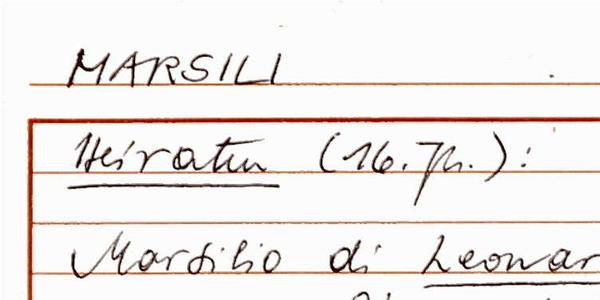 MARSILI
Heiraten (16. Jh.):
Marsilio di Leonar